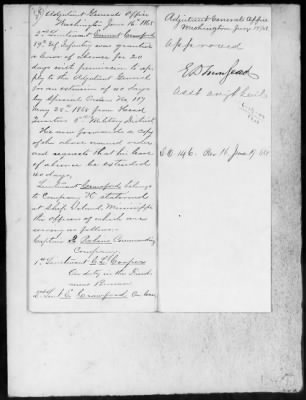 Adjutant Generals Office
Washington June 16th 1868
2nd Lieutenant Emmet Crawford
39th Inf Infantry was granted
a leave of absence for 20
days with permission to ap
ply to the Adjutant General
for an extension of 40 days
by Special Orders No 107
May 25th 1868 from Head
Quarters 4th Military District
He now forwards a copy
of the above named order
and requests that his leave
of absence be extended
40 days,
Lieutenant Crawford belongs
to Company K stationed
at Ship Island, Mississippi
the officers of which are
serving as follows.
Captain Commanding
Company
1st Lieutenant C. L. Cooper
On duty in the Freed
mens Bureau
2nd Lieut E. Crawford On leave
Adjutant Generals Office
Washington June 17 1868
Approved
E D Townsend
Asst Adjt Genl
S.O. 146. Par 16 June 19 68